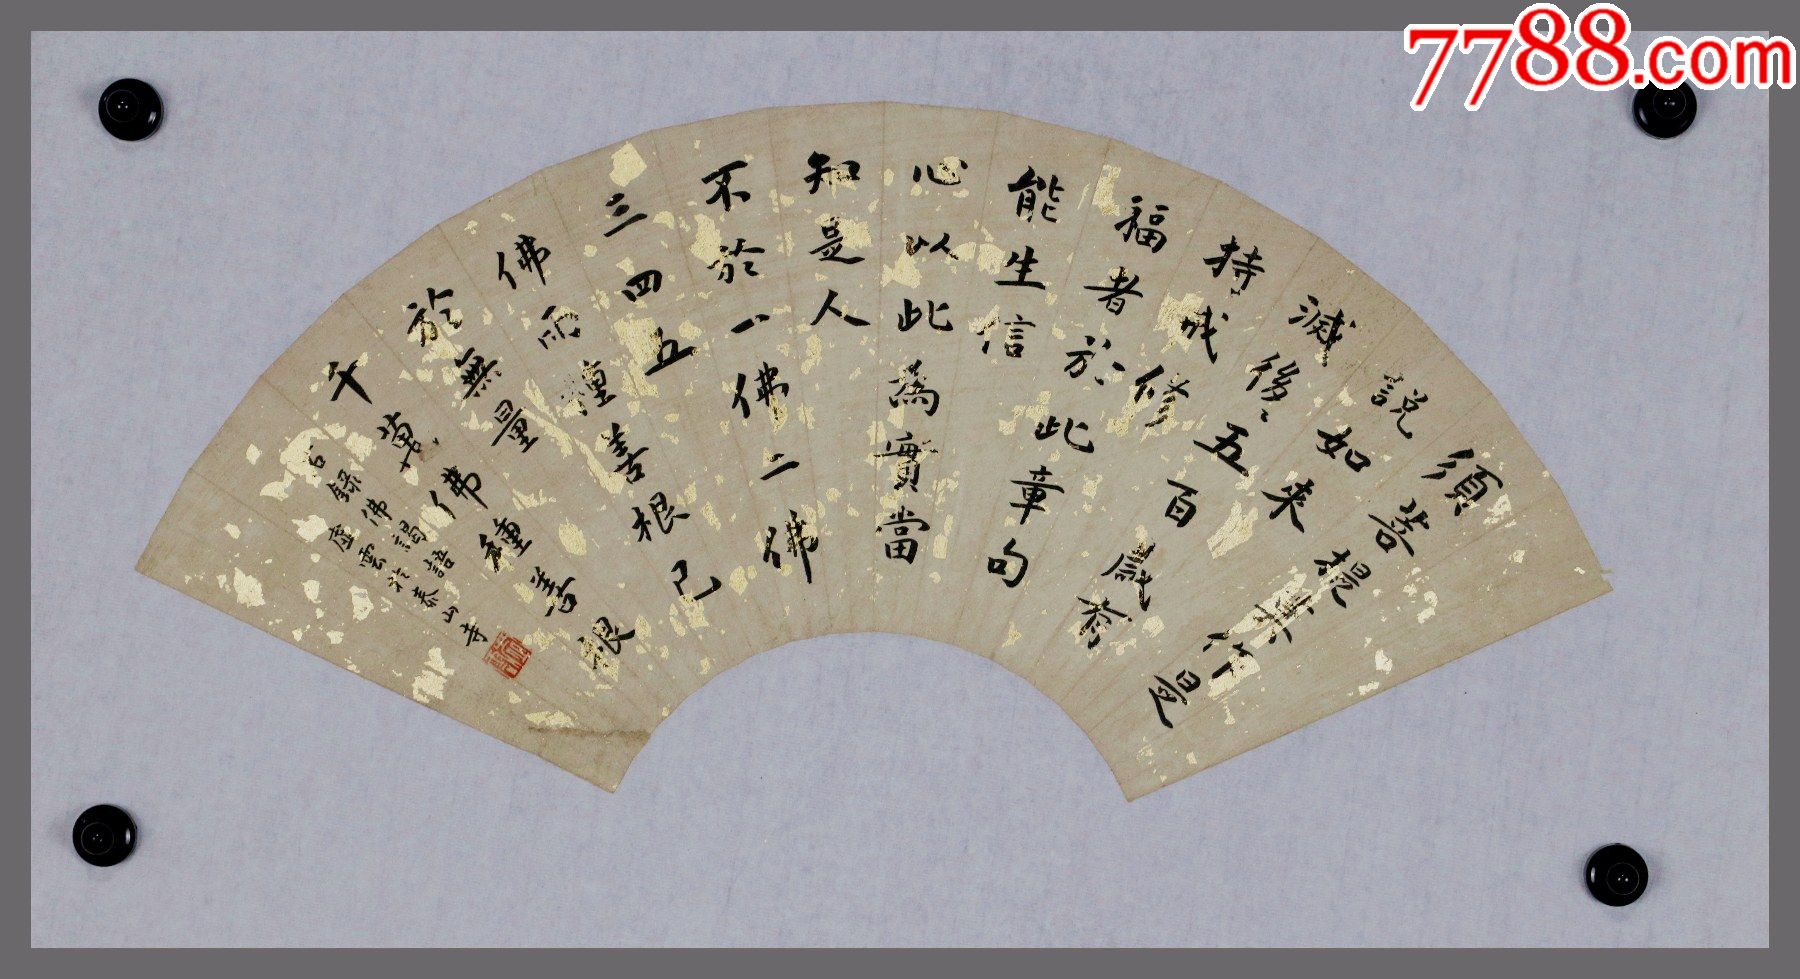 7788.com
須菩提莫作是
説如來
滅後五百歲有
持戒修
福者於此章句
能生信
心以此為實當
知是人
不於一佛二佛
三四五
佛而種善根已
於無量
千萬佛種善根
錄佛謁語
虛雲於泰山寺